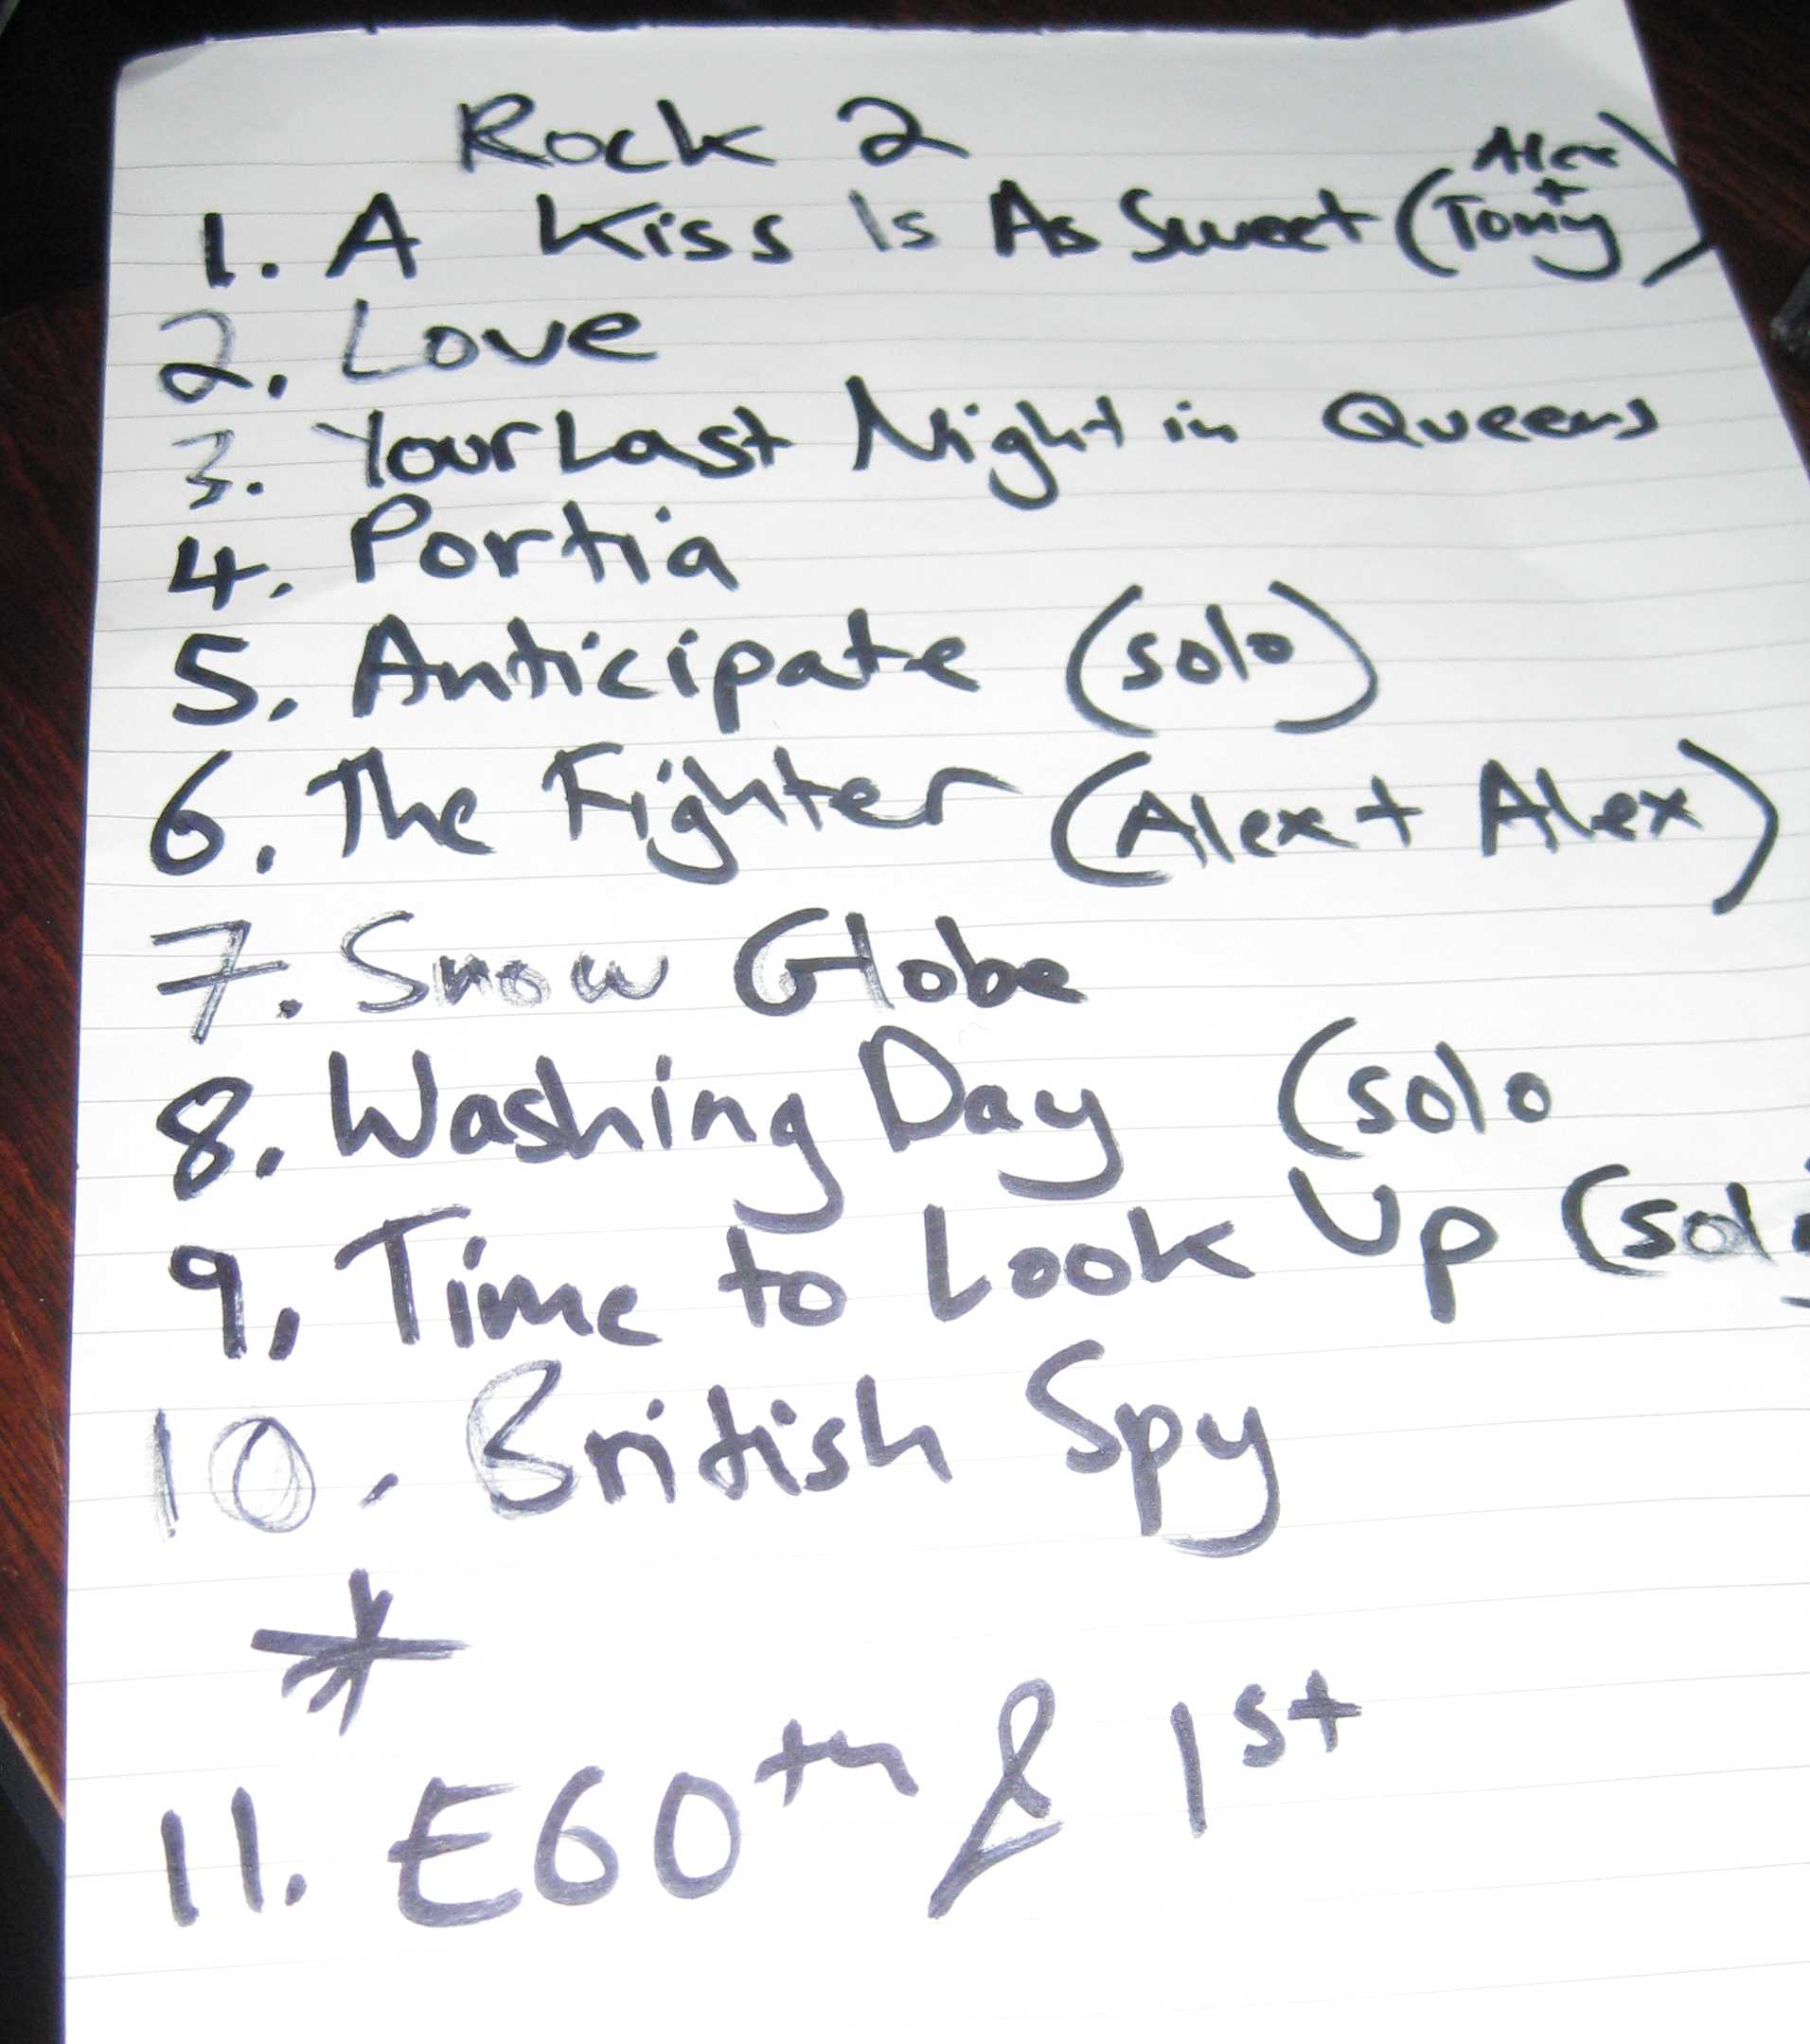 Rock 2
1. A Kiss Is As Sweet (Alex + Tony)
2. Love
3. Your Last Night in Queens
4. Portia
5. Anticipate (solo)
6. The Fighter (Alex + Alex)
7. Snow Globe
8. Washing Day (solo
9. Time to Look Up (solo
10. British Spy
*
11. E60th & 1st